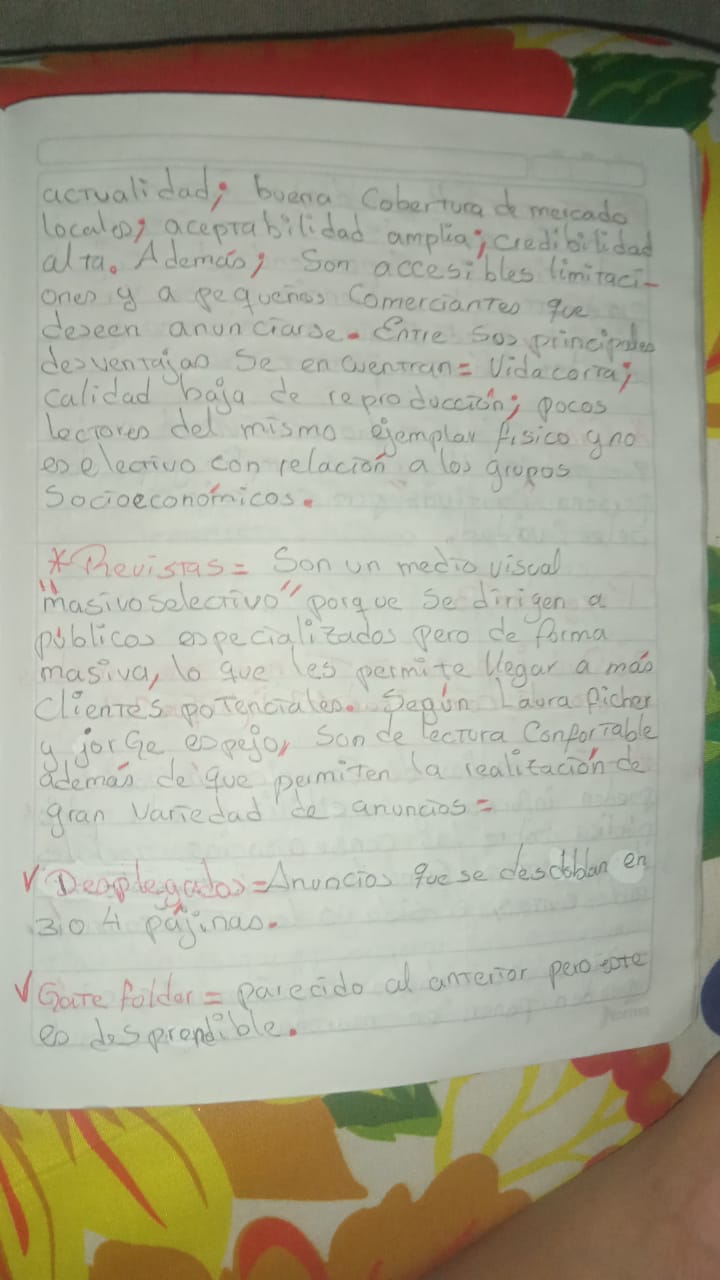 actualidad; buena Cobertura de mercado
locales; aceptabilidad amplia; credibilidad
alta. Además; Son accesibles limitaci-
ones y a pequeños Comerciantes que
deseen anunciarse. Entre sus principales
desventajas Se encuentran= Vida corta;
calidad baja de reproducción; pocos
lectores del mismo ejemplar físico y no
es elective con relación a los grupos
Socioeconómicos.
*Revistas= Son un medio visual
"masivo selectivo" porque Se dirigen a
públicos especializados pero de forma
masiva, lo que les permite llegar a más
Clientes potenciales. Según Laura ficher
y jorGe espejo, Son de lectura Confortable
además de que permiten la realización de
gran Variedad de anuncios=
√ Desplegados=Anuncios que se desdoblan en
3 o 4 pájinas.
√ Gate folder= parecido al anterior pero este
es desprendible.
norma